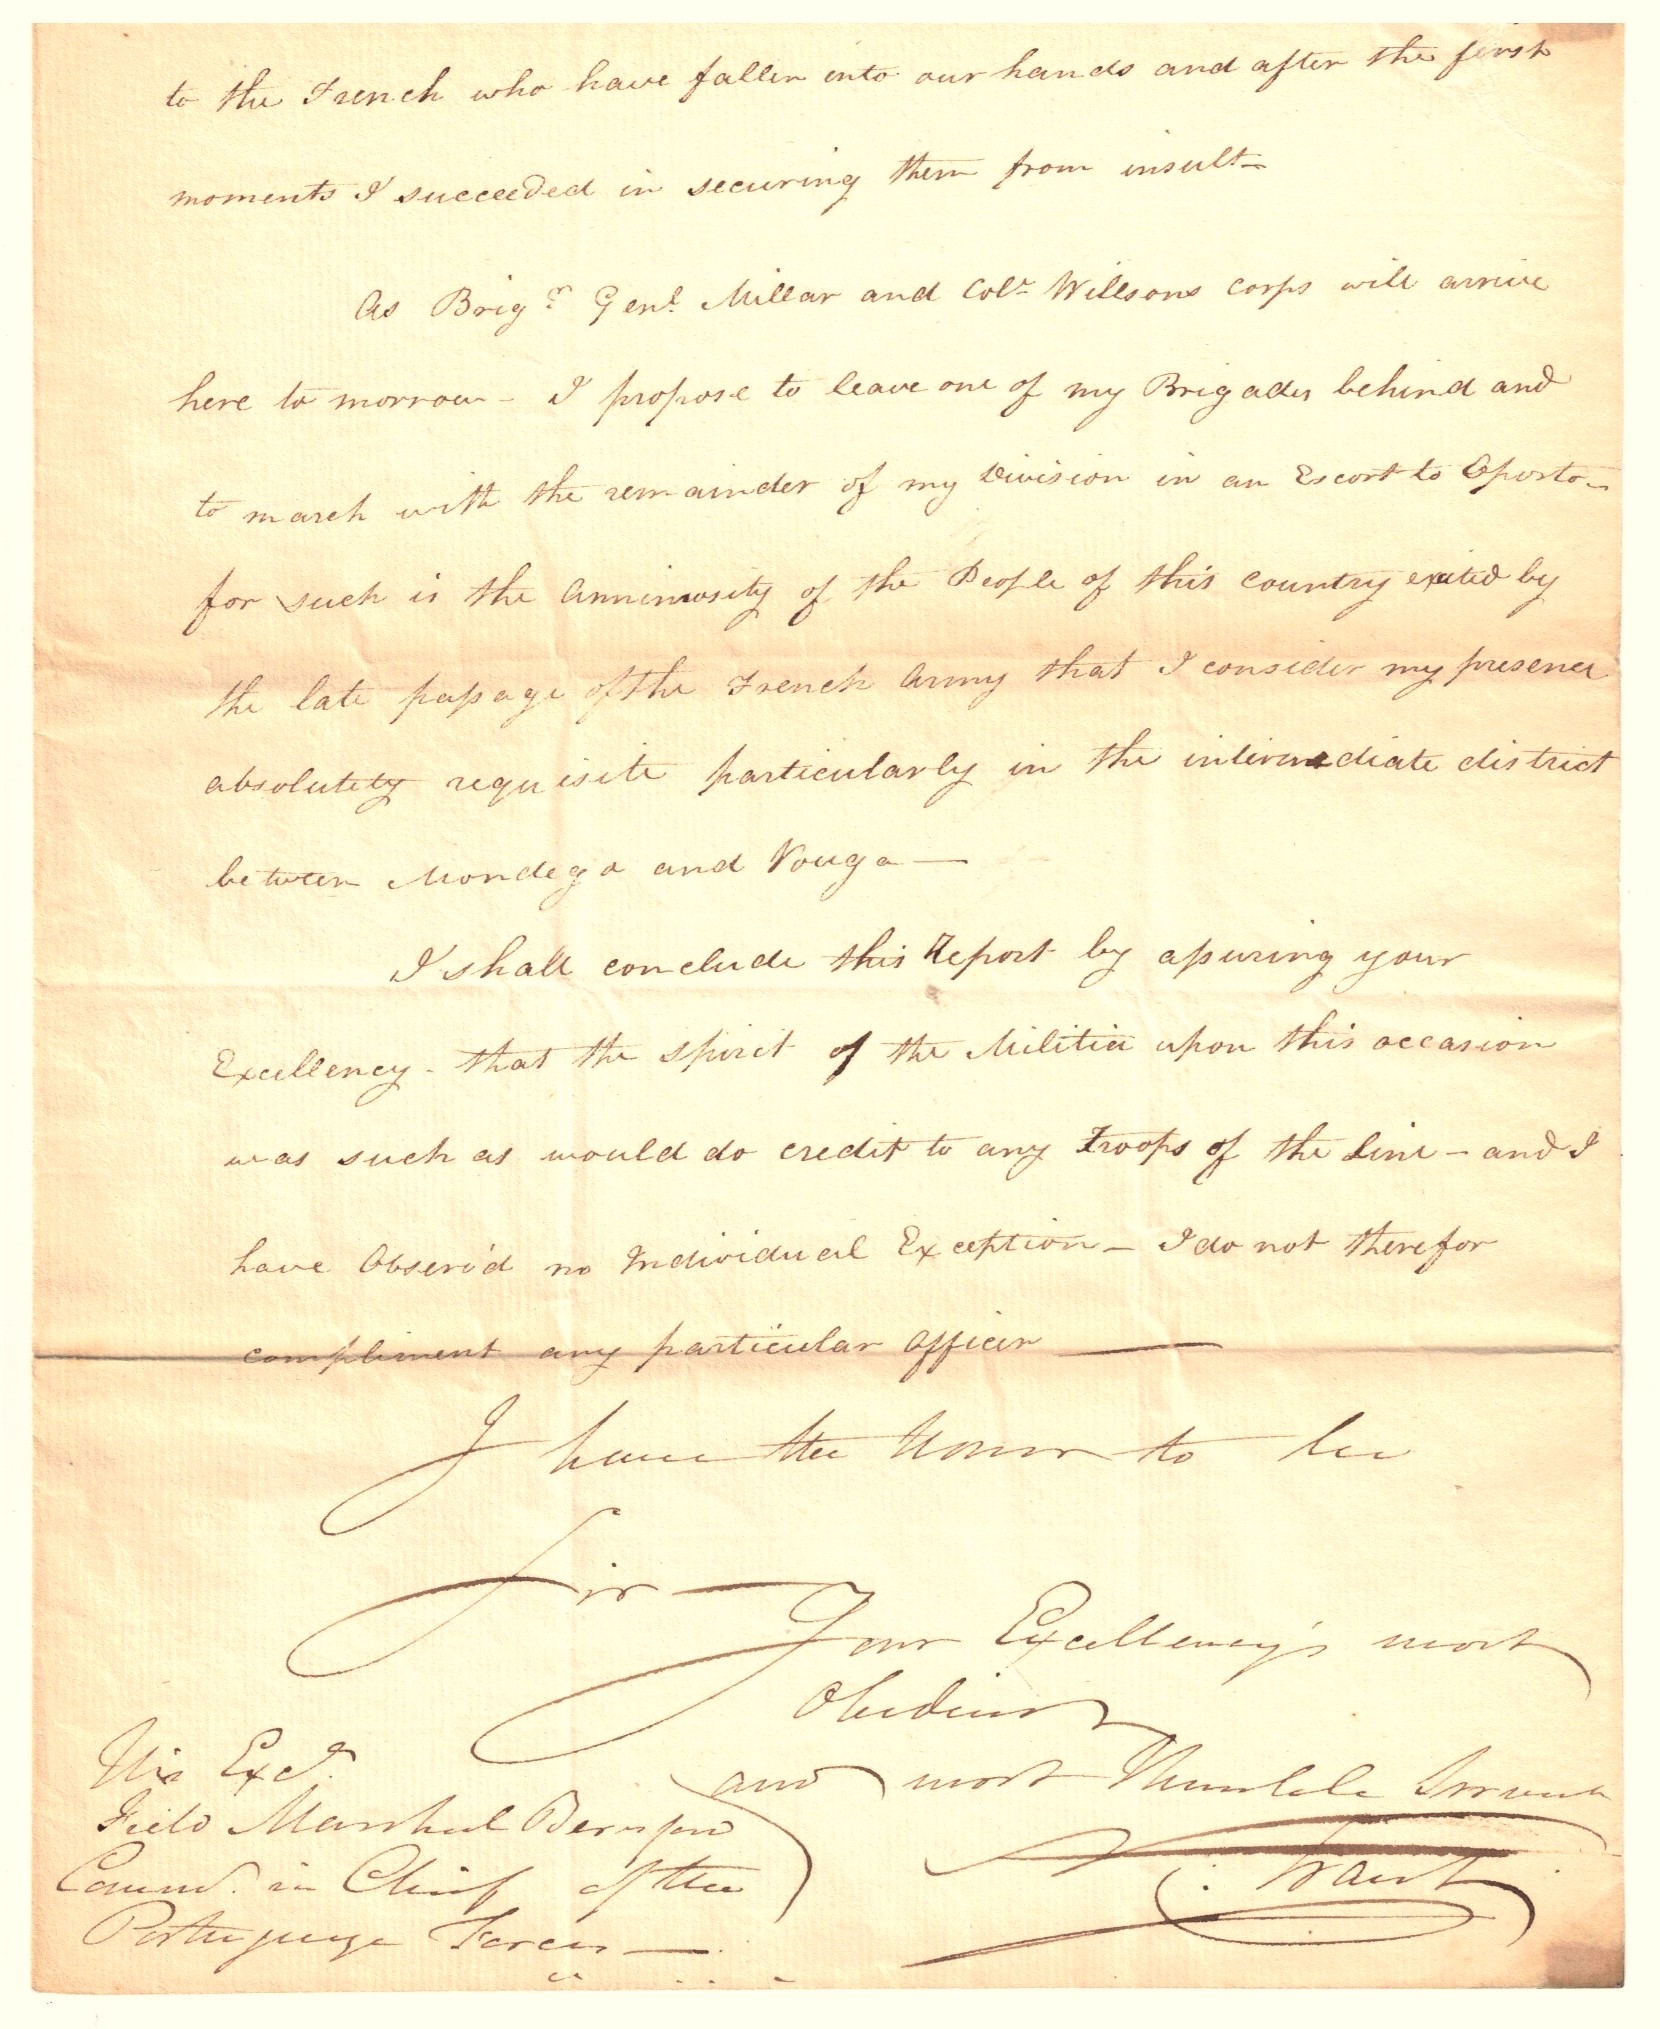 to the French who have fallen into our hands and after the first
moments I succeeded in securing them from insult—
As Brigr Genl Millar and Coll Willsons corps will arrive
here to morrow - I propose to leave one of my Brigades behind and
to march with the remainder of my Division in an Escort to Oporto—
for such is the Annimosity of the People of this country exited by
the late passage of the French Army that I consider my presence
absolutely requisite particularly in the intermediate district
between Mondego and Vouga —
I shall conclude this Report by assuring your
Excellency - that the spirit of the Militia upon this occasion
was such as would do credit to any Troops of the Line - and I
have Observ'd no Individual Exception - I do not therefor
compliment any particular Officer —
I have the Honor to be
Sir —
Your Excellency's most
Obedient
and most Humble Servant
Trant
His Excy
Field Marshal Beresford
Commr in Chief of the
Portugueze Forces —